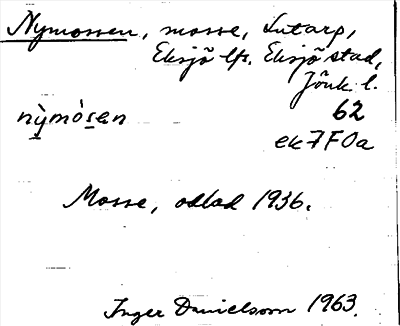 Nymossen, mosse, Lutarp,
Eksjö lfs. Eksjö stad,
Jönk l.
62
nỳmòsen
ek7F0a
Mosse, odlad 1936.
Inger Danielsson 1963.